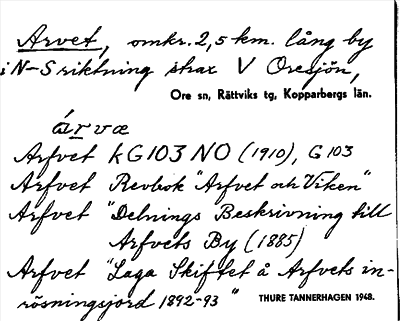 Arvet, omkr. 2,5 km. lång by
i N–S riktning strax V Oresjön,
Ore sn, Rättviks tg, Kopparbergs län.
árvæ
Arfvet KG103 NO (1910), G103
Arfvet Revbok "Arfvet och Viken"
Arfvet "Delnings Beskrivning till
Arfvets By (1885)
Arfvet "Laga Skiftet å Arfvets in-
rösningsjord 1892-93" THURE TANNERHAGEN 1948.